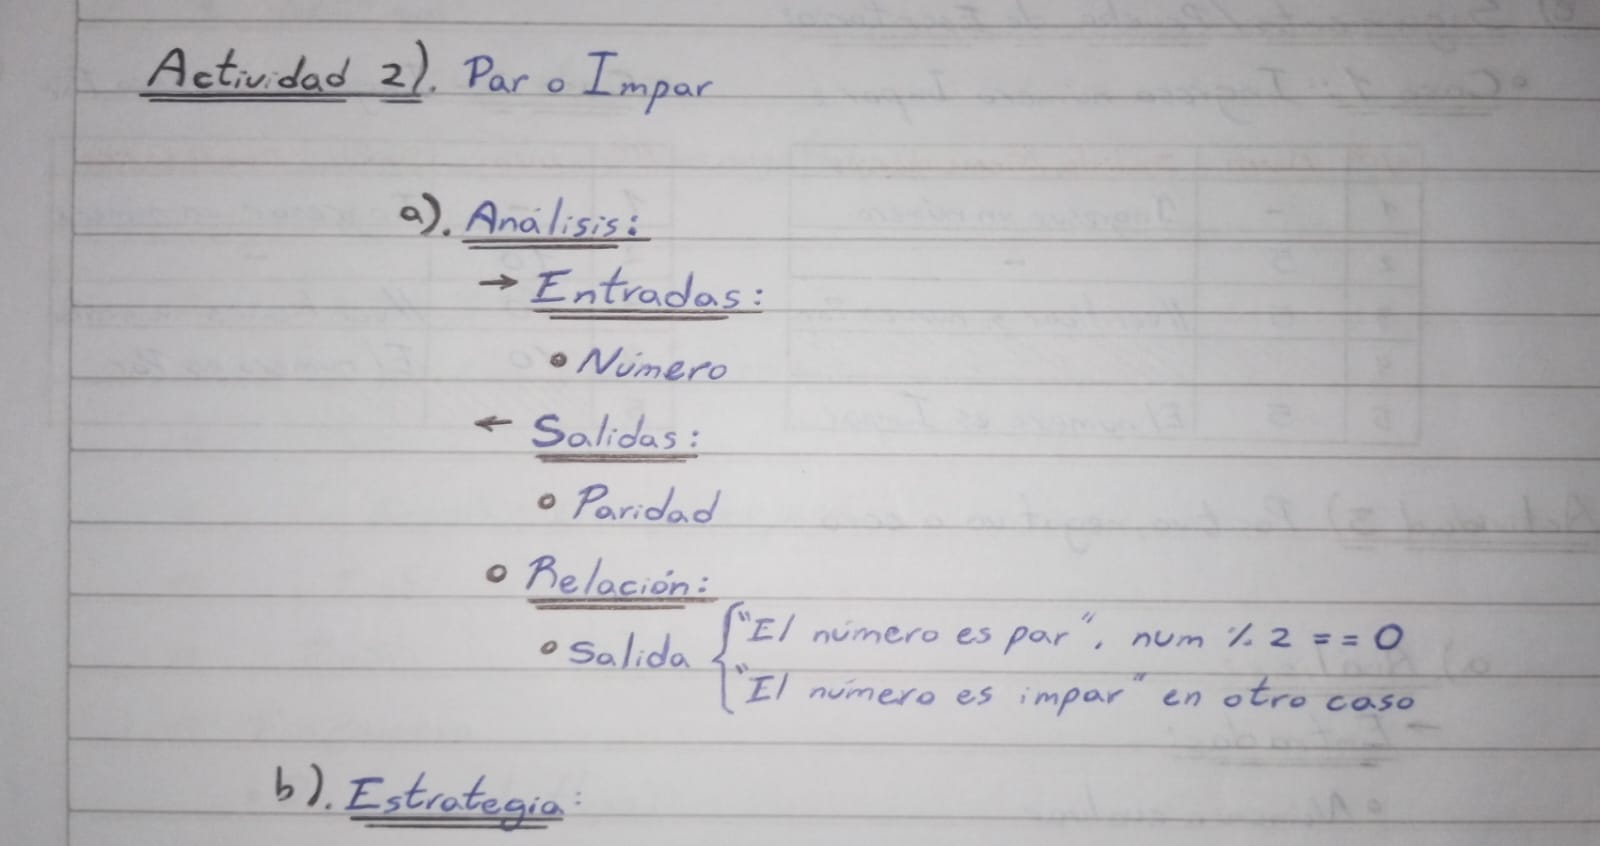 Actividad 2). Par o Impar
a). Análisis:
→ Entradas:
• Número
← Salidas:
• Paridad
• Relación:
• Salida { "El número es par", num % 2 == 0
"El número es impar" en otro caso
b). Estrategia: